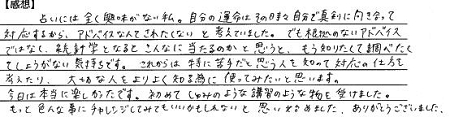 【感想】
占いには全く興味がない私。自分の運命はその時々自分で真剣に向き合って
対応するから、アドバイスなんてされたくない と考えていました。でも根拠のないアドバイス
ではなく、統計学となるとこんなに当たるのかと思うと、もう知りたくて調べたく
てしょうがない気持ちです。これからは特に苦手だと思う人を知って対応の仕方を
考えたり、大切な人をよりよく知る為に使ってみたいと思います。
今日は本当に楽しかったです。初めてしゅみのような講習のような物を受けました。
もっと色んな事にチャレンジしてみてもいいかもしれないと思い始めました。ありがとうございました。